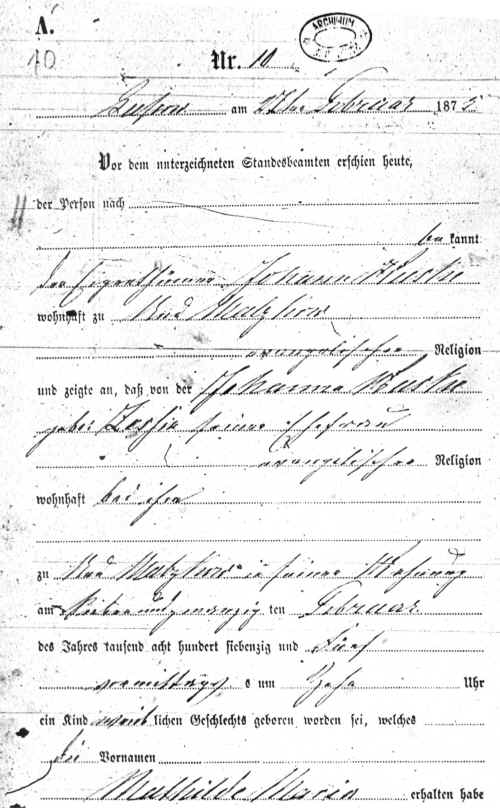 A.
10
ARCHIWUM
Nr. 10
am 27ten Februar 1875
Vor dem unterzeichneten Standesbeamten erschien heute,
der Person nach
bekannt
der Eigenthümer Johann Kuske
wohnhaft zu Neu
evangelischer Religion
und zeigte an, daß von der Johanna Kuske
geb. seiner Ehefrau
evangelischer Religion
wohnhaft bei ihm
zu Neu in seiner Wohnung
am Siebenundzwanzigsten Februar
des Jahres tausend acht hundert siebenzig und fünf
vormittags um Zehn Uhr
ein Kind weiblichen Geschlechts geboren worden sei, welches
die Vornamen
Mathilde Maria erhalten habe